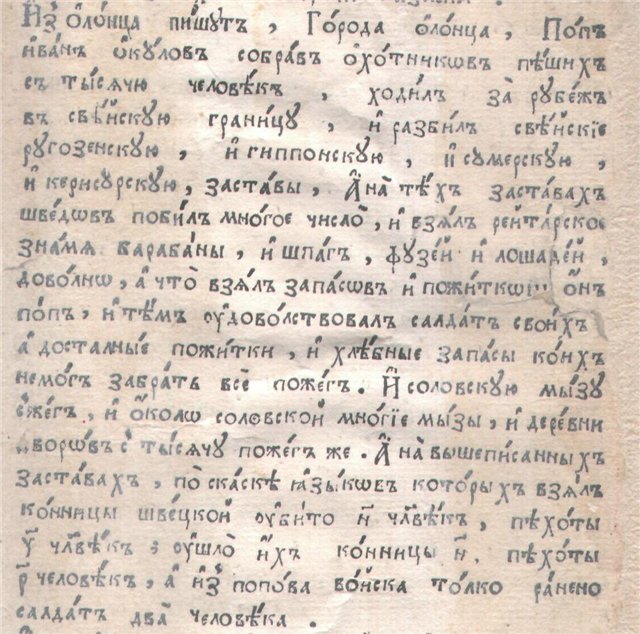 И҆з̾ ѻ҆ло́нца пи́шꙋтъ , Го́рода ѻ҆ло́нца , По́пъ
і҆ва́нъ ѻ҆кꙋ́ловъ собра́въ ѻ҆хо́тникѡвъ пѣ́шихъ
съ ты́сячю человѣ́къ , ходи́лъ за̀ рꙋбе́жъ
въ свѣ́йскꙋю грани́цꙋ , и҆ разби́лъ свѣ́йскїе
рꙋгозенскꙋю , и҆ гиппонскꙋю , и҆ сꙋмерскꙋю ,
и҆ керисꙋрскꙋю , заста́вы , А҆ на̀ тѣ́хъ заста́вахъ
шве́дѡвъ поби́лъ мно́гое число̀ , и҆ взя́лъ ре́йта́рское
зна́мя барабаны , и҆ шпа́гъ , фꙋзе́й и҆ лошаде́й ,
дово́лнѡ , а҆ что̀ взя́лъ запа́сѡвъ и҆ пожи́ткѡвъ ѻ҆́нъ
по́пъ , и҆ тѣ́мъ ᲂу҆дово́лствовалъ салда́тъ свои́хъ
а҆ доста́лные пожи́тки , и҆ хлѣ́бные запа́сы ко́ихъ
немо́гъ забра́ть всѐ поже́гъ . И҆ соловскꙋю мы́зꙋ
сже́гъ , и҆ ѻ҆́колѡ соло́вской мно́гїе мы́зы , и҆ дере́вни
дворѡ́въ с̾ ты́сячꙋ поже́гъ же . А҆ на̀ вышепи́санныхъ
заста́вахъ , по̀ ска́скѣ ꙗ҆зы́кѡвъ кото́рыхъ взя́лъ
ко́нницы шве́цкой ᲂу҆би́то н҃ члвѣ́къ , пѣхо́ты
у҃ члвѣ́къ : ᲂу҆шло̀ и҆́хъ ко́нницы н҃ , пѣхо́ты
р҃ человѣ́къ , а҆ и҆з̾ попо́ва во́йска то́лко ра́нено
салда́тъ два̀ человѣ́ка .